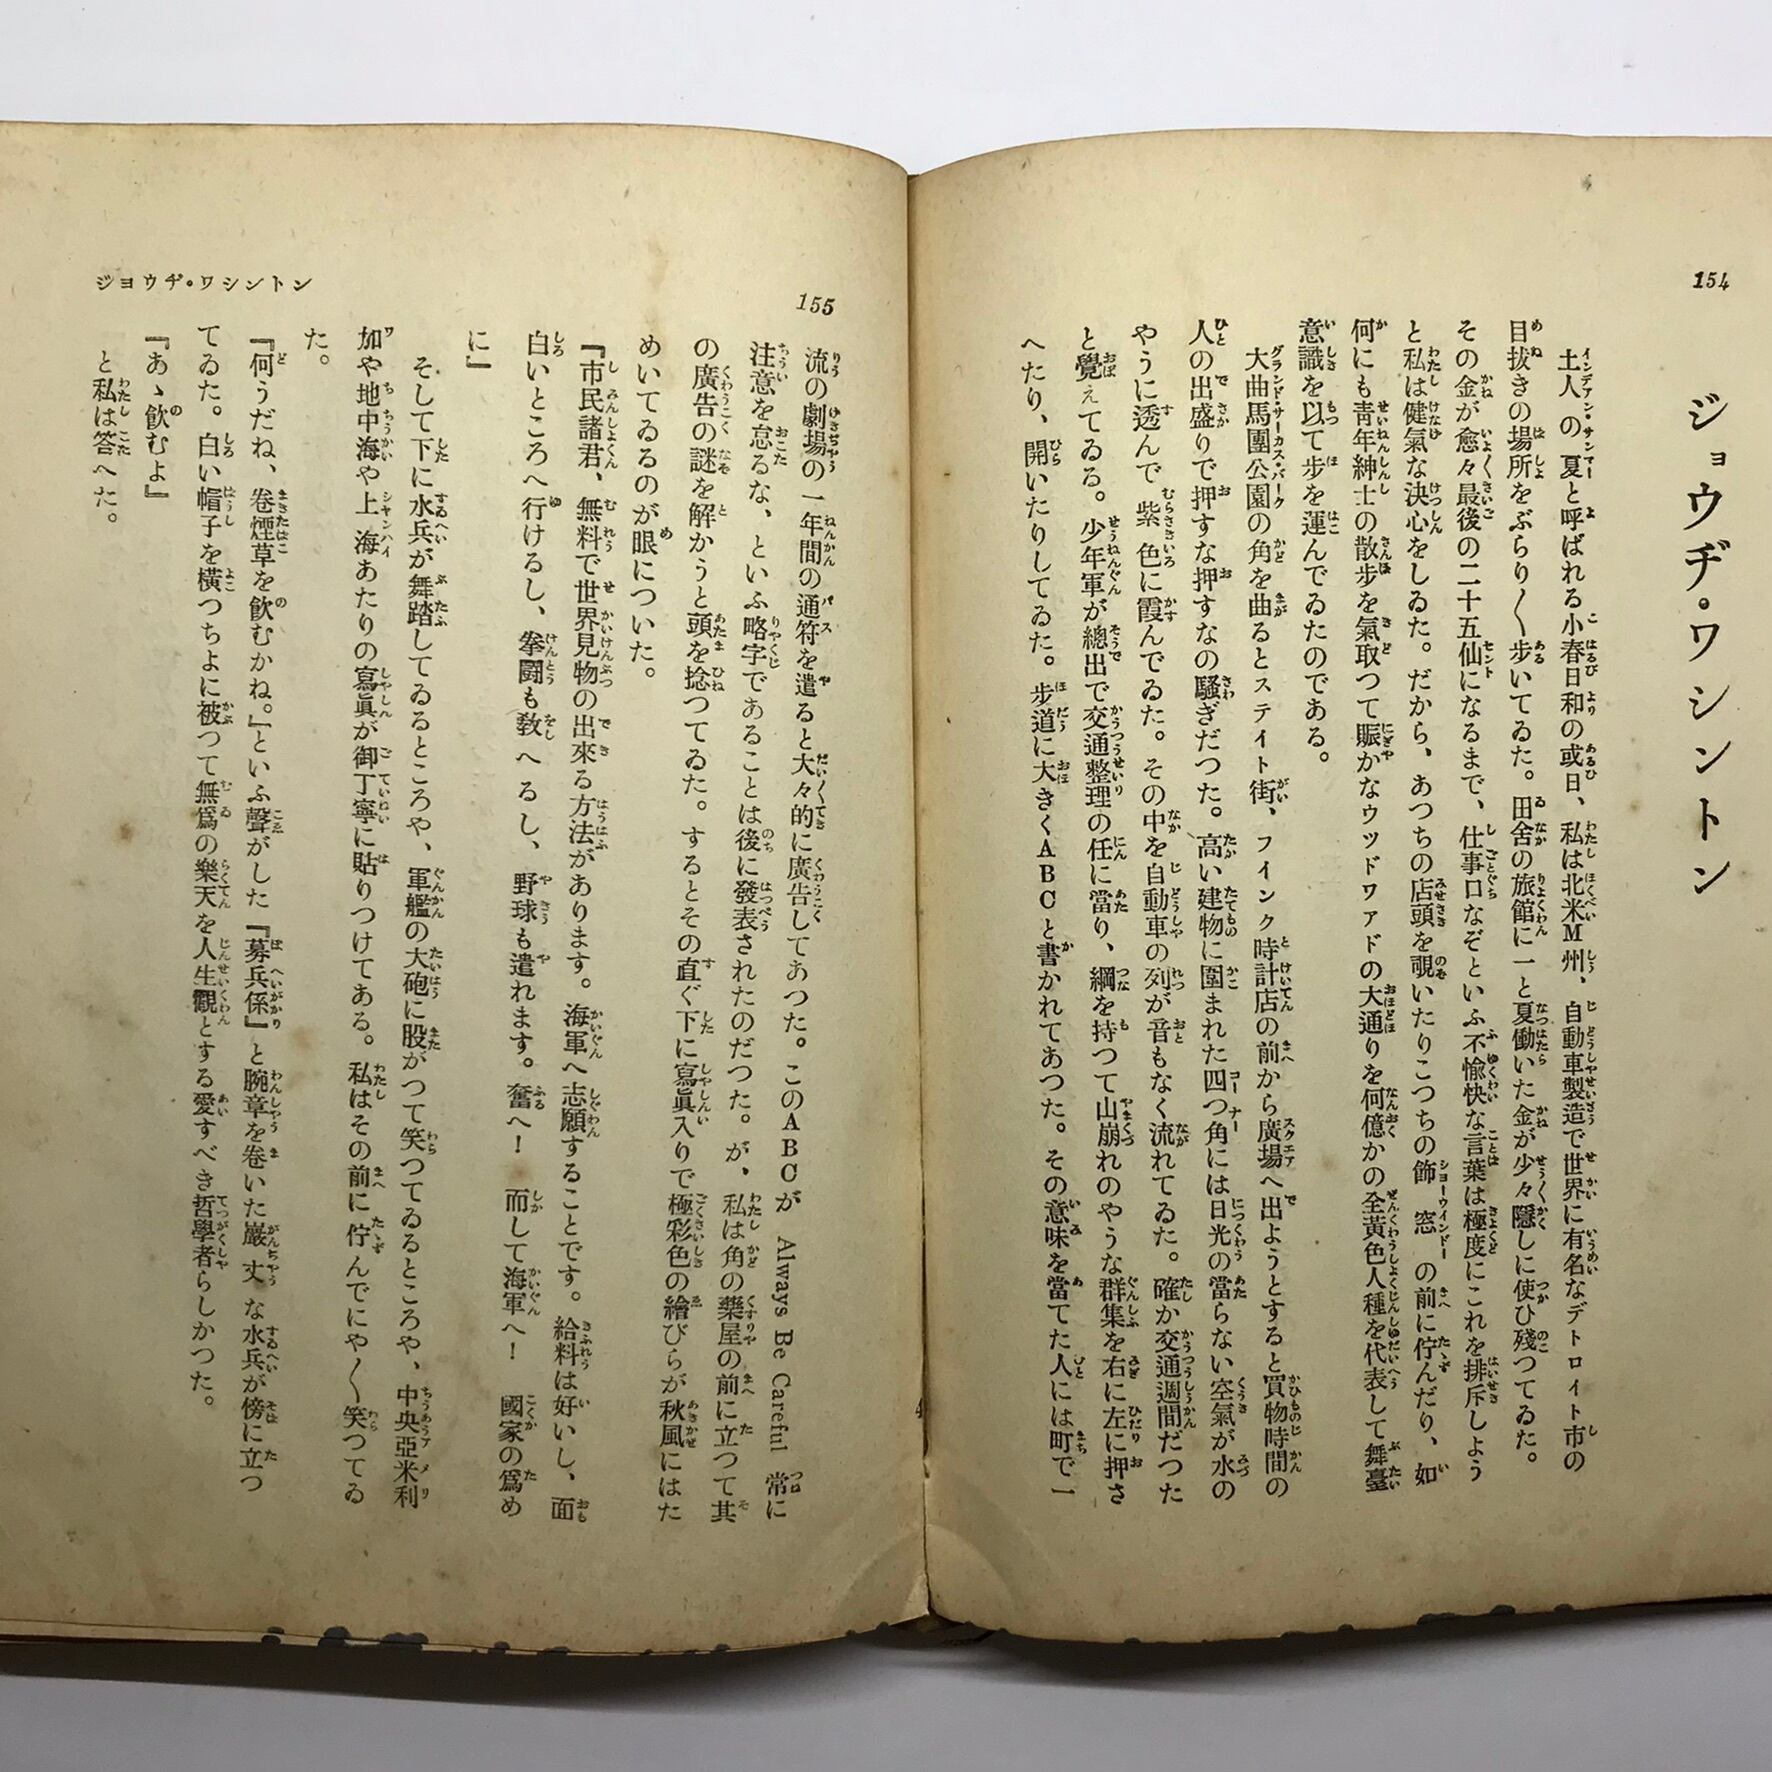 154
ジョウヂ・ワシントン
土人の夏と呼ばれる小春日和の或日、私は北米M州、自動車製造で世界に有名なデトロイト市の
目抜きの場所をぶらり〳〵歩いてゐた。田舍の旅館に一と夏働いた金が少々隱しに使ひ殘つてゐた。
その金が愈々最後の二十五仙になるまで、仕事口なぞといふ不愉快な言葉は極度にこれを排斥しよう
と私は健氣な決心をしゐた。だから、あつちの店頭を覗いたりこつちの飾窓の前に佇んだり、如
何にも靑年紳士の散步を氣取つて賑かなウツドワアドの大通りを何億かの全黃色人種を代表して舞臺
意識を以て步を運んでゐたのである。
大曲馬團公園の角を曲るとステイト街、フインク時計店の前から廣場へ出ようとすると買物時間の
人の出盛りで押すな押すなの騷ぎだつた。高い建物に圍まれた四つ角には日光の當らない空氣が水の
やうに透んで紫色に霞んでゐた。その中を自動車の列が音もなく流れてゐた。確か交通週間だつた
と覺えてゐる。少年軍が總出で交通整理の任に當り、綱を持つて山崩れのやうな群集を右に左に押さ
へたり、開いたりしてゐた。步道に大きくABCと書かれてあつた。その意味を當てた人には町で一
155
ジョウヂ・ワシントン
流の劇場の一年間の通符を遣ると大々的に廣告してあつた。このABCが Always Be Careful 常に
注意を怠るな、といふ略字であることは後に發表されたのだつた。が、私は角の藥屋の前に立つて其
の廣告の謎を解かうと頭を捻つてゐた。するとその直ぐ下に寫眞入りで極彩色の繪びらが秋風にはた
めいてるゐのが眼についた。
『市民諸君、無料で世界見物の出來る方法があります。海軍へ志願することです。給料は好いし、面
白いところへ行けるし、拳闘も敎へるし、野球も遣れます。奮へ！而して海軍へ！國家の爲め
に』
そして下に水兵が舞踏してゐるところや、軍艦の大砲に股がつて笑つてゐるところや、中央亞米利
加や地中海や上海あたりの寫眞が御丁寧に貼りつけてある。私はその前に佇んでにや〳〵笑つてゐ
た。
『何うだね、卷煙草を飮むかね。』といふ聲がした『募兵係』と腕章を卷いた巖丈な水兵が傍に立つ
てゐた。白い帽子を橫つちよに被つて無爲の樂天を人生觀とする愛すべき哲學者らしかつた。
『あゝ飮むよ』
と私は答へた。